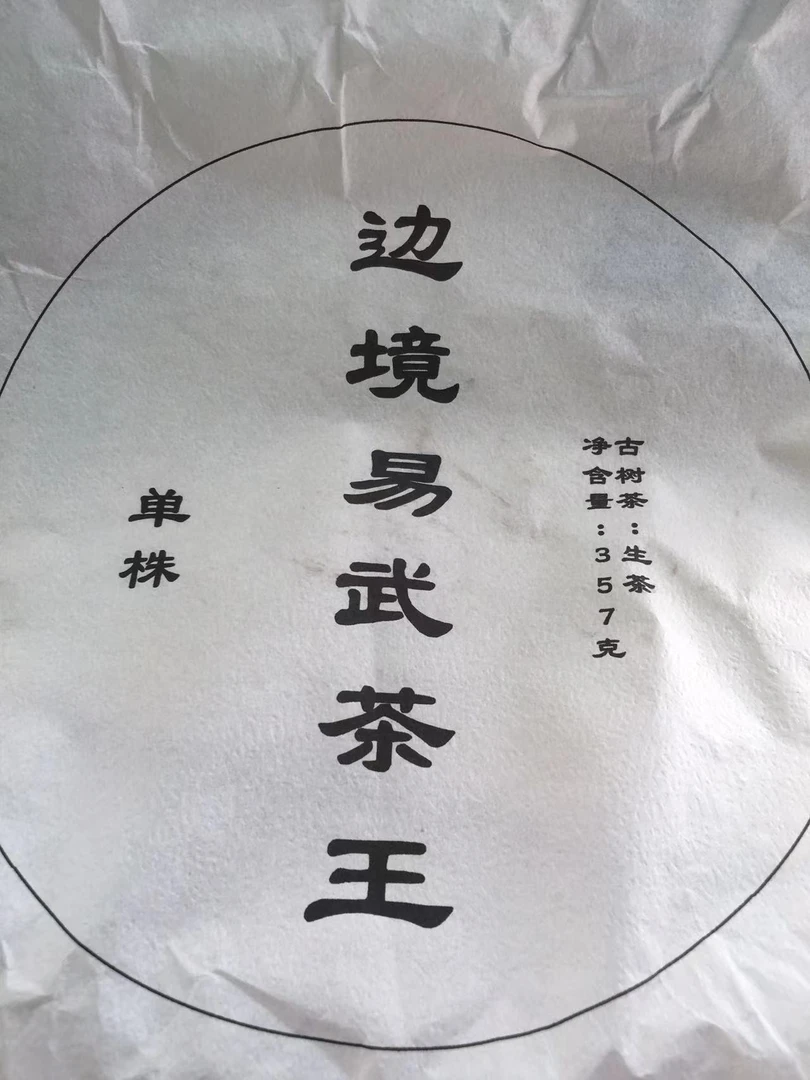 古树茶：生茶
净含量：357克
边境易武茶王
单株